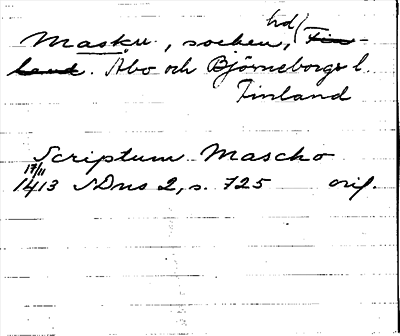 Masku, socken, hd/ Fin-
land. Åbo och Björneborgs l.
Finland
Scriptum Mascho
17/11
1413 SDns 2, s. 725 orig.